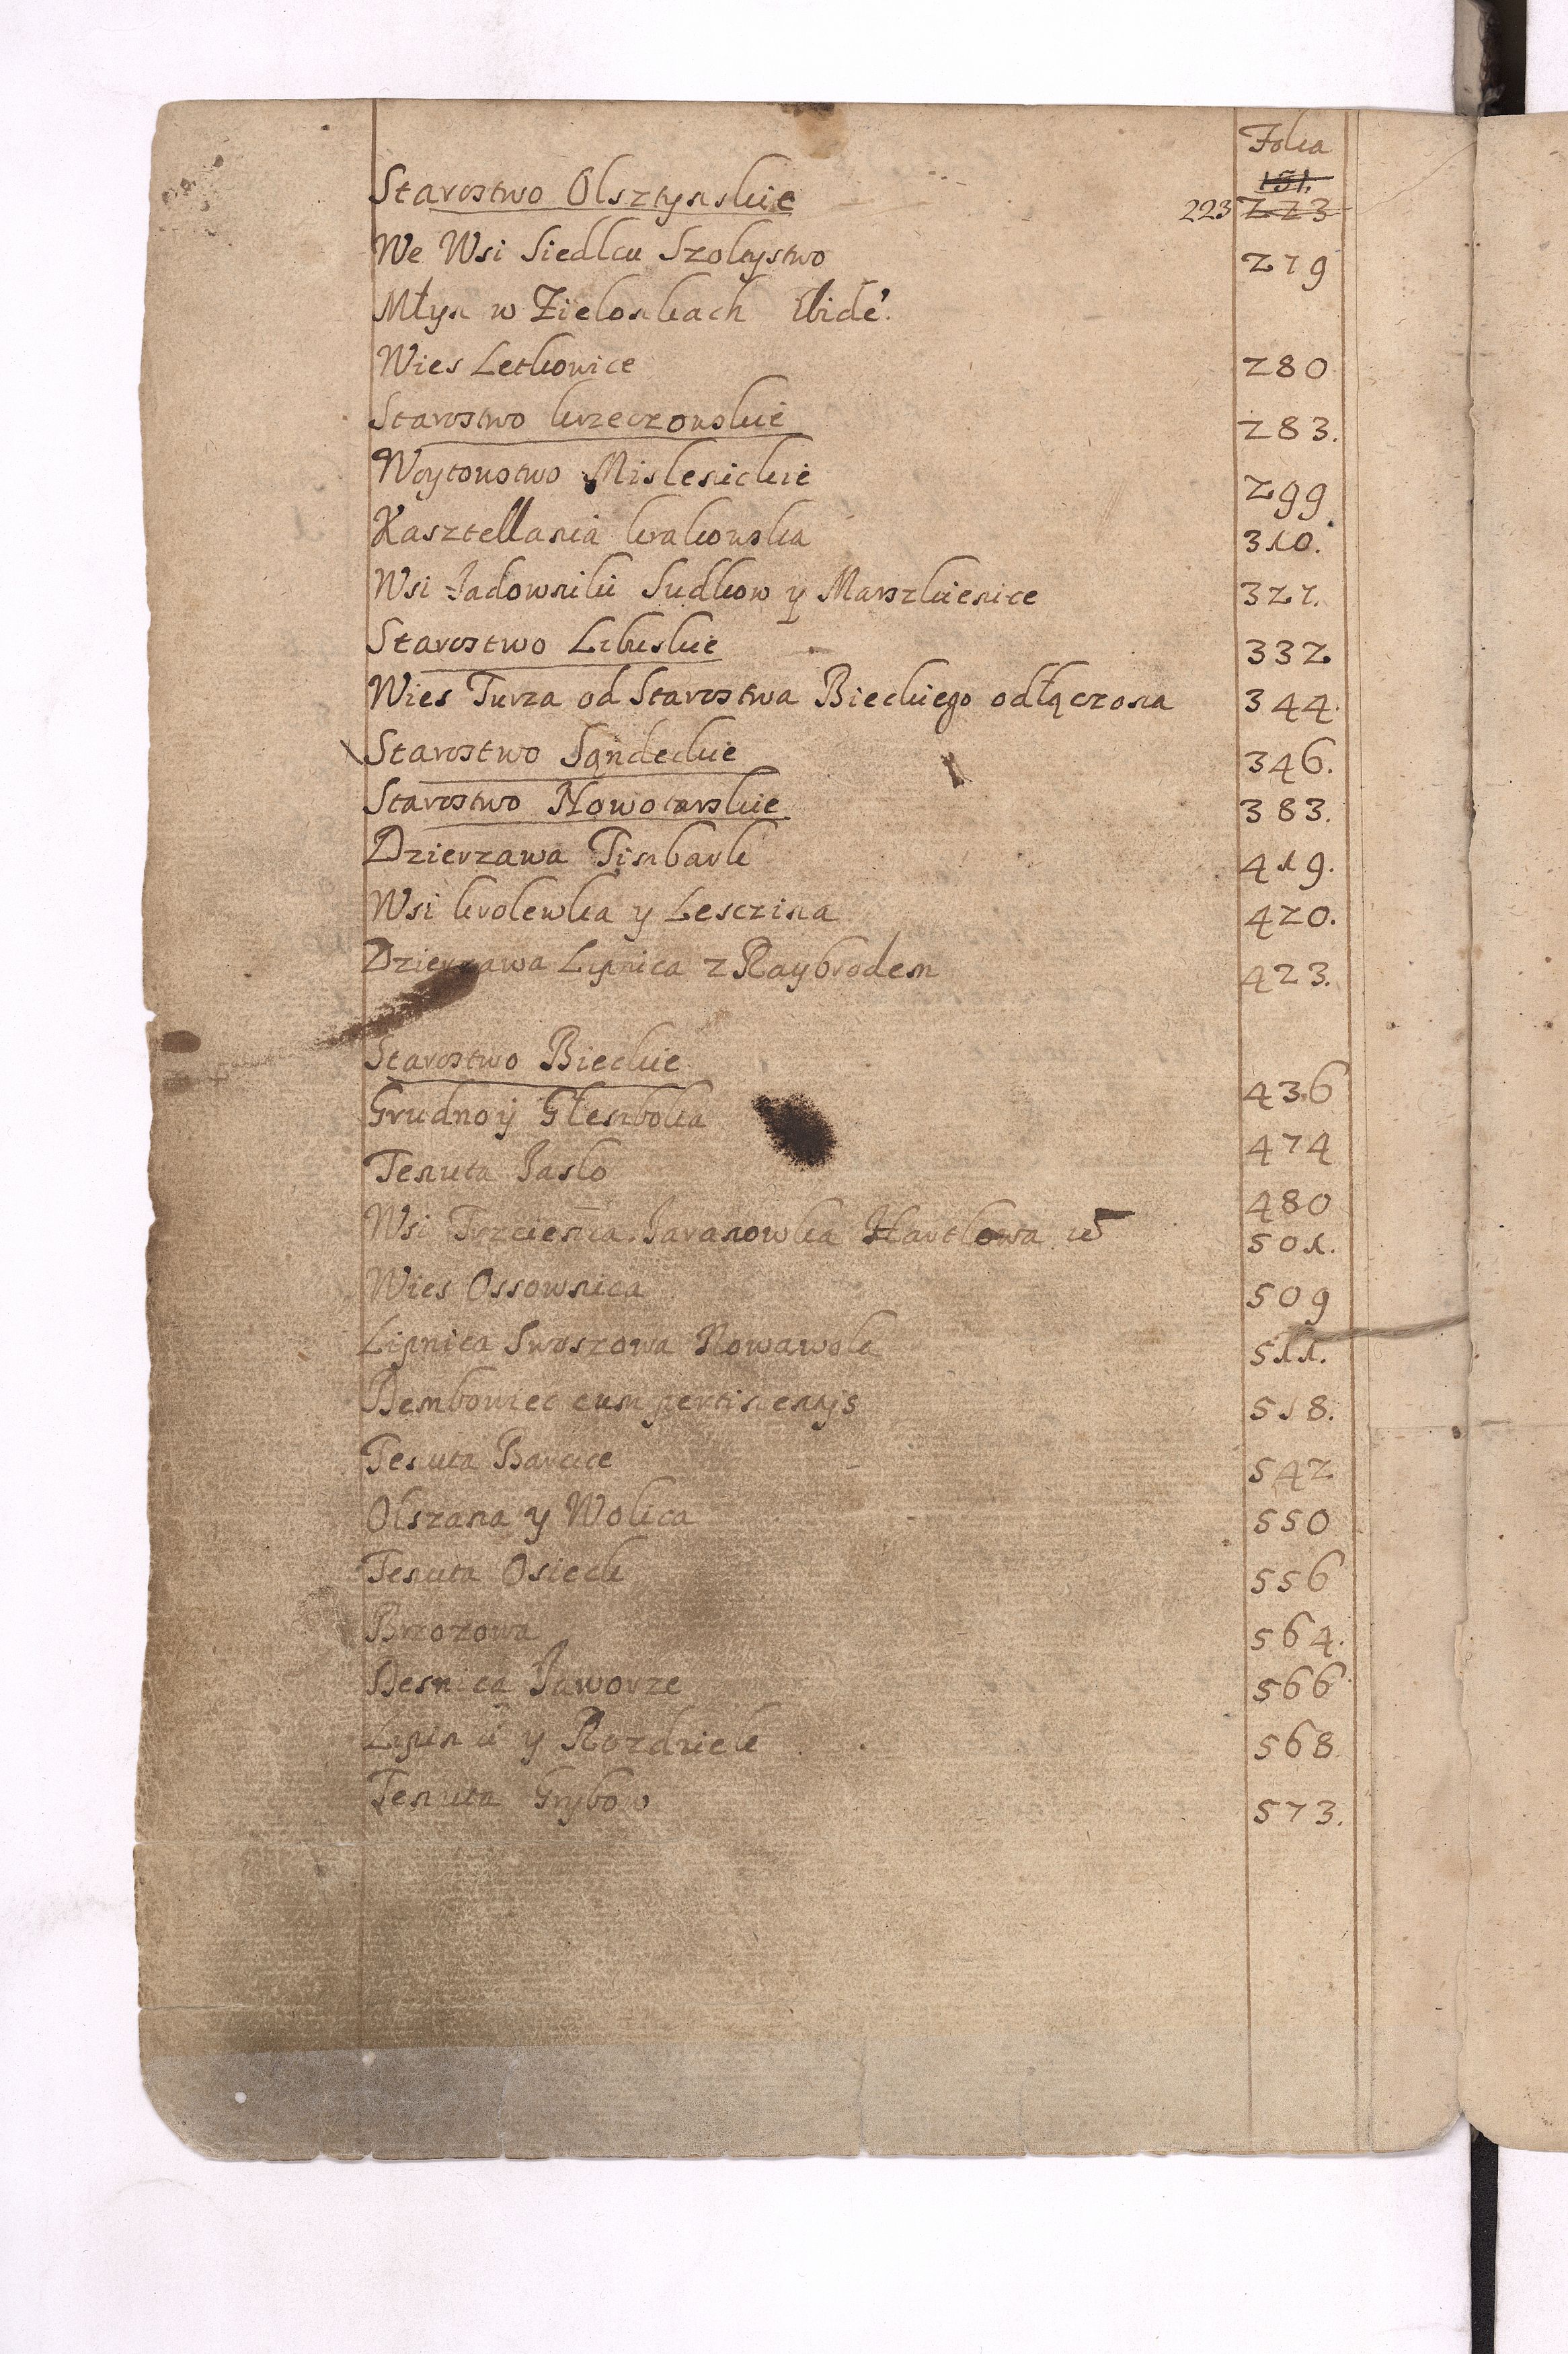 Folia
151.
Starostwo Olsztynskie 223 223
We Wsi Siedlcu Szoltystwo 279
Młyn w Zielonkach Ibidē.
Wies Letkowice 280
Starostwo krzeczowskie 283.
Woytowstwo Mislenickie 299
Kasztellania krakowska 310.
Wsi Jadowniki Sudkow y Marszkienice 327.
Starostwo Libuskie 332
Wies Turza od Starostwa Bieckiego odłączona 344.
Starostwo Sądeckie 346.
Starostwo Nowotarskie 383.
Dzierzawa Timbark 419.
Wsi krolewka y Lesczina 420.
Dzierzawa Lipnica z Raybrodem 423.
Starostwo Bieckie 436
Grudno y Głemboka 474
Tenuta Jaslo 480
Wsi Trzcienica Jaranowka Harklowa 501.
Wies Ossownica 509
Lipnica Swoszowa Nowawola 511.
Dembowiec cum pertinentijs 518.
Tenuta Barcice 542
Olszana y Wolica 550
Tenuta Osieck 556
Brzozowa 564.
Desnica Jaworze 566
Lipinki y Rozdziele 568
Tenuta Grybow 573.